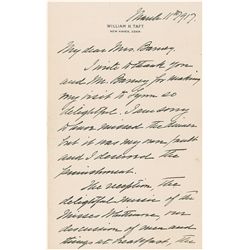 March 11th 1917.
WILLIAM H. TAFT.
NEW HAVEN, CONN.
My dear Mrs. Barney
I write to thank you
and Mr. Barney for making
my visit to Lynn so
delightful. I am sorry
to have missed the dinner
but it was my own fault
and I deserved the
punishment.
The reception, the
delightful music of the
Misses Whittmore, our
discussion of men and
things at breakfast, the